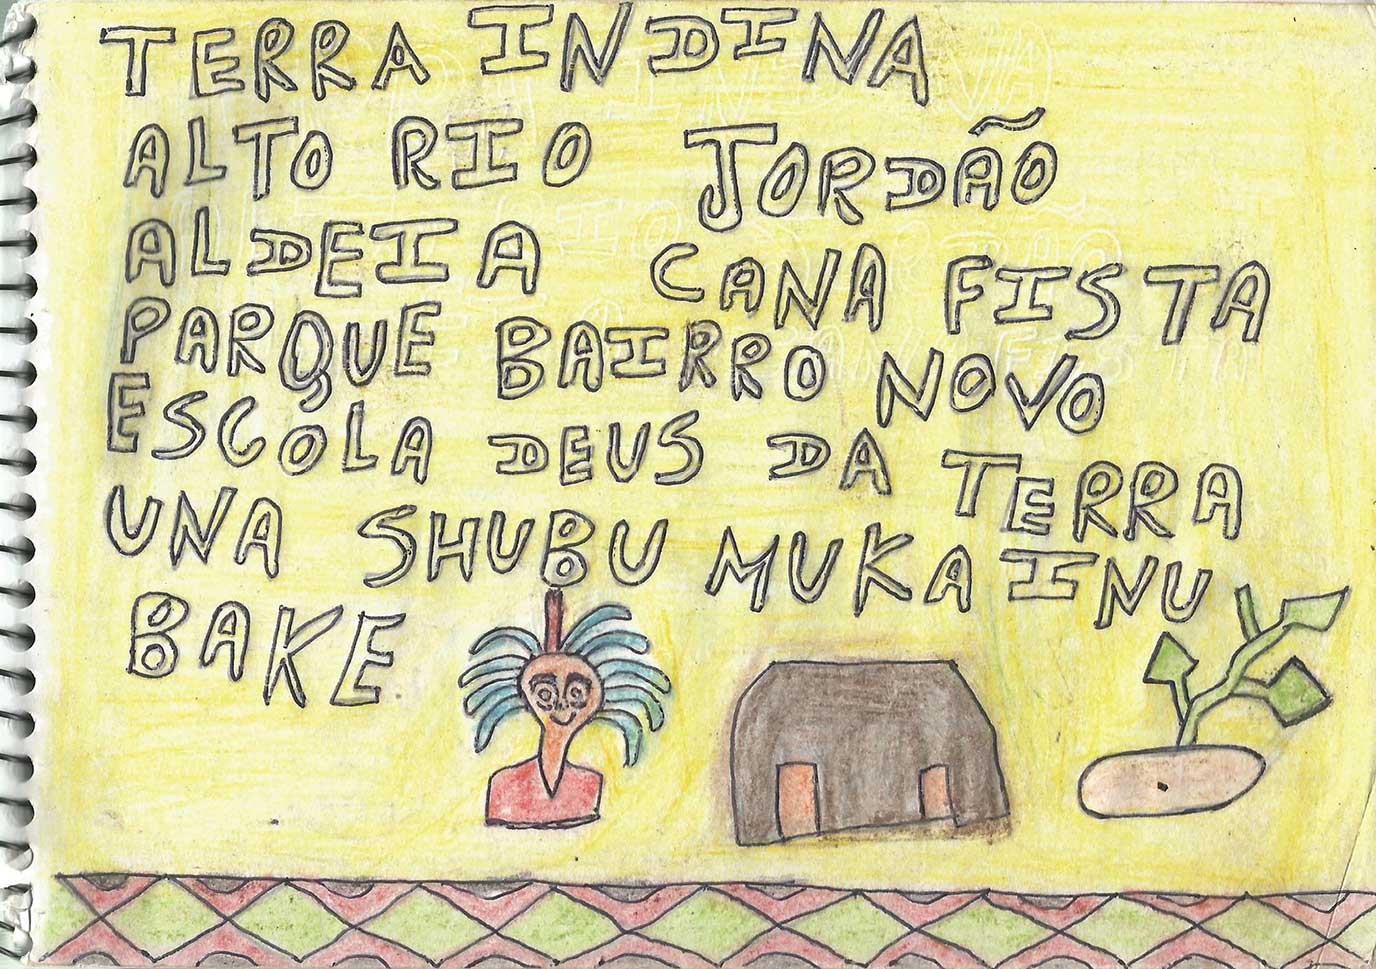 TERRA INDINA
ALTO RIO JORDÃO
ALDEIA CANA FISTA
PARQUE BAIRRO NOVO
ESCOLA DEUS DA TERRA
UNA SHUBU MUKA INU
BAKE